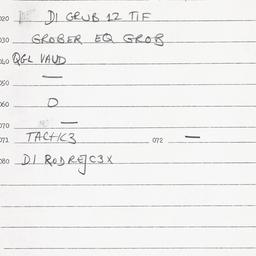 020 DI GRUB 12 TIF
030 GROBER EQ GROB
040 QGL VAUD
050 —
060 O
070 —
071 TACHC3 072 —
080 DI RODREJC3X